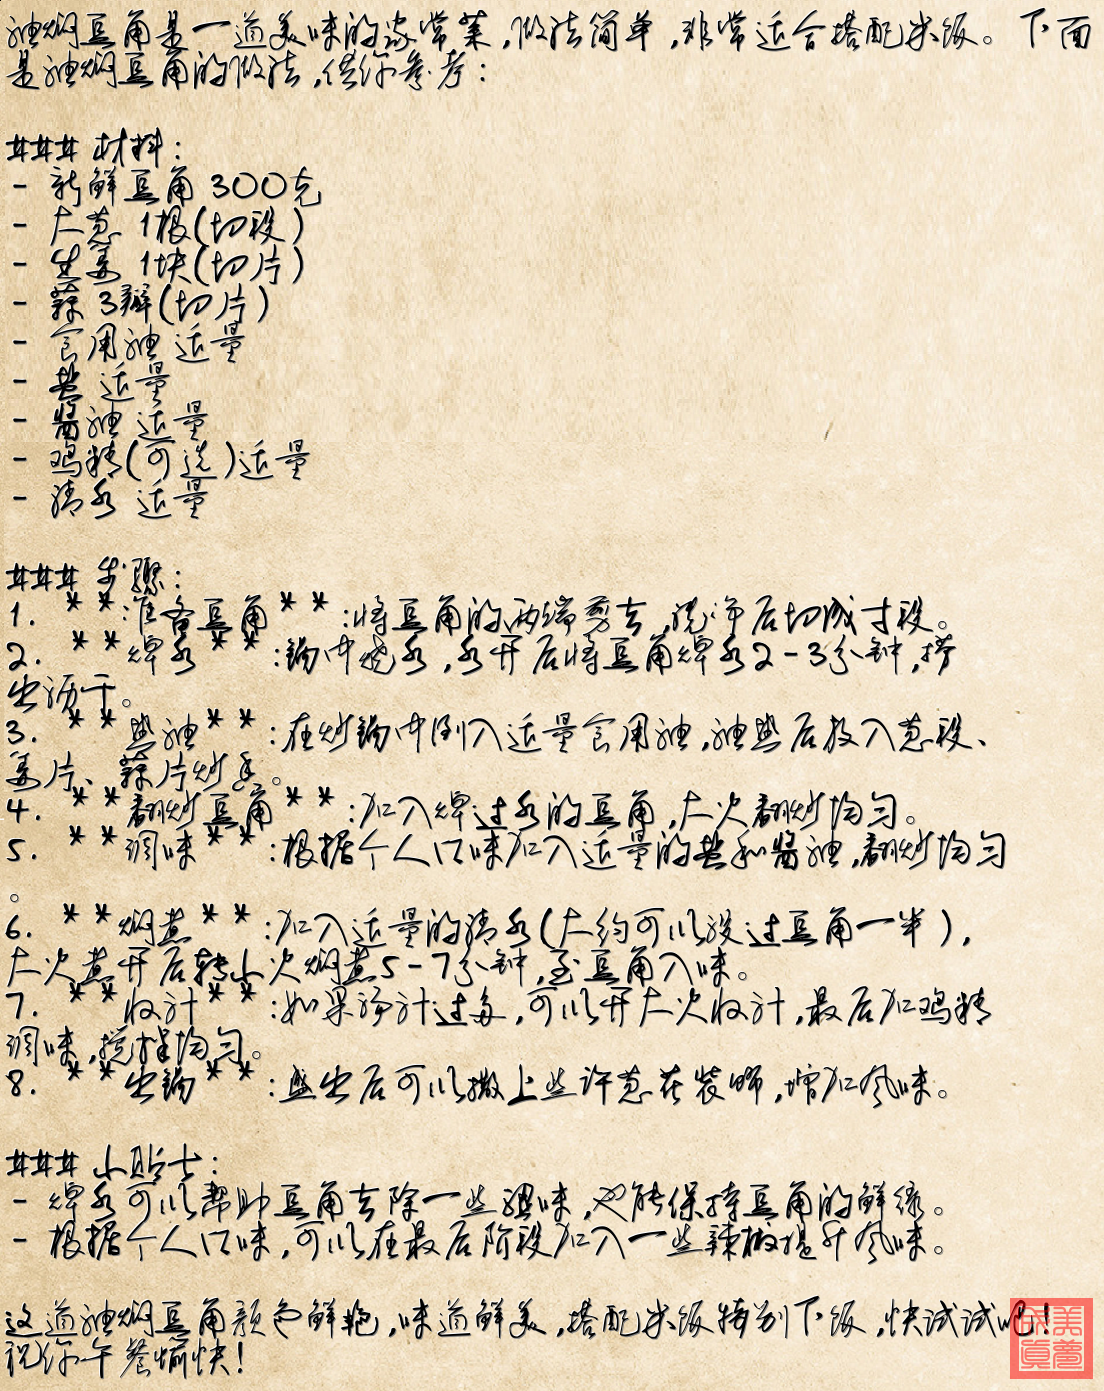 油焖豆角是一道美味的家常菜,做法简单,非常适合搭配米饭。下面
是油焖豆角的做法,供你参考:
### 材料:
- 新鲜豆角 300克
- 大葱 1根(切段)
- 生姜 1块(切片)
- 蒜 3瓣(切片)
- 食用油 适量
- 盐 适量
- 酱油 适量
- 鸡精(可选)适量
- 清水 适量
### 步骤:
1. **准备豆角**:将豆角的两端剪去,洗净后切成寸段。
2. **焯水**:锅中烧水,水开后将豆角焯水2-3分钟,捞
出沥干。
3. **热油**:在炒锅中倒入适量食用油,油热后放入葱段、
姜片、蒜片炒香。
4. **翻炒豆角**:加入焯过水的豆角,大火翻炒均匀。
5. **调味**:根据个人口味加入适量的盐和酱油,翻炒均匀
。
6. **焖煮**:加入适量的清水(大约可以没过豆角一半),
大火煮开后转小火焖煮5-7分钟,至豆角入味。
7. **收汁**:如果汤汁过多,可以开大火收汁,最后加鸡精
调味,搅拌均匀。
8. **出锅**:盛出后可以撒上些许葱花装饰,增加风味。
### 小贴士:
- 焯水可以帮助豆角去除一些涩味,也能保持豆角的鲜绿。
- 根据个人口味,可以在最后阶段加入一些辣椒提升风味。
这道油焖豆角颜色鲜艳,味道鲜美,搭配米饭特别下饭,快试试吧!
祝你午餐愉快!